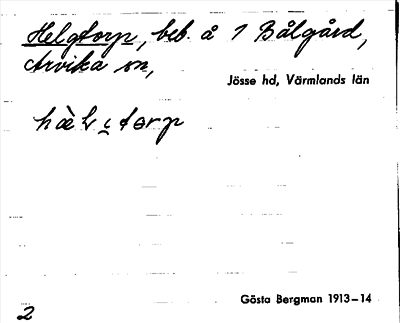 Helgtorp, beb. å 1 Bålgård,
Arvika sn,
Jösse hd, Värmlands län
Gösta Bergman 1913–14
2